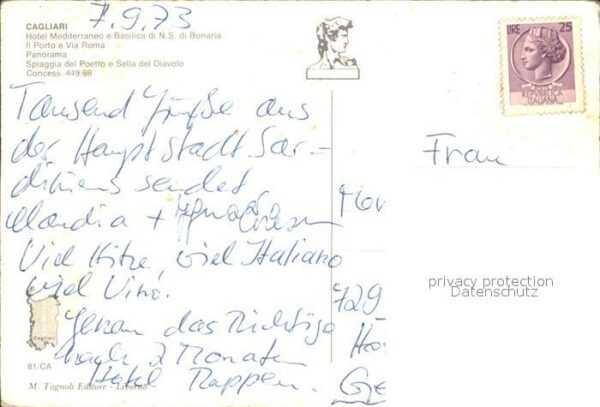 7.9.73
CAGLIARI
Hotel Mediterraneo e Basilica di N. S. di Bonaria
Il Porto e Via Roma
Panorama
Spiaggia del Poetto e Sella del Diavolo
Concess. 449/69
LIRE 25
REPUBBLICA
ITALIANA
Tausend Grüße aus
der Hauptstadt Sar-
diniens sendet
Claudia + Ignazio
Viel Hitze, viel Italiano
viel Vino.
Genau das Richtige
nach 2 Monaten
Hotel Rappen.
Frau
729
privacy protection
Datenschutz
Cagliari
81:CA
M. Tognoli Editore - Livorno